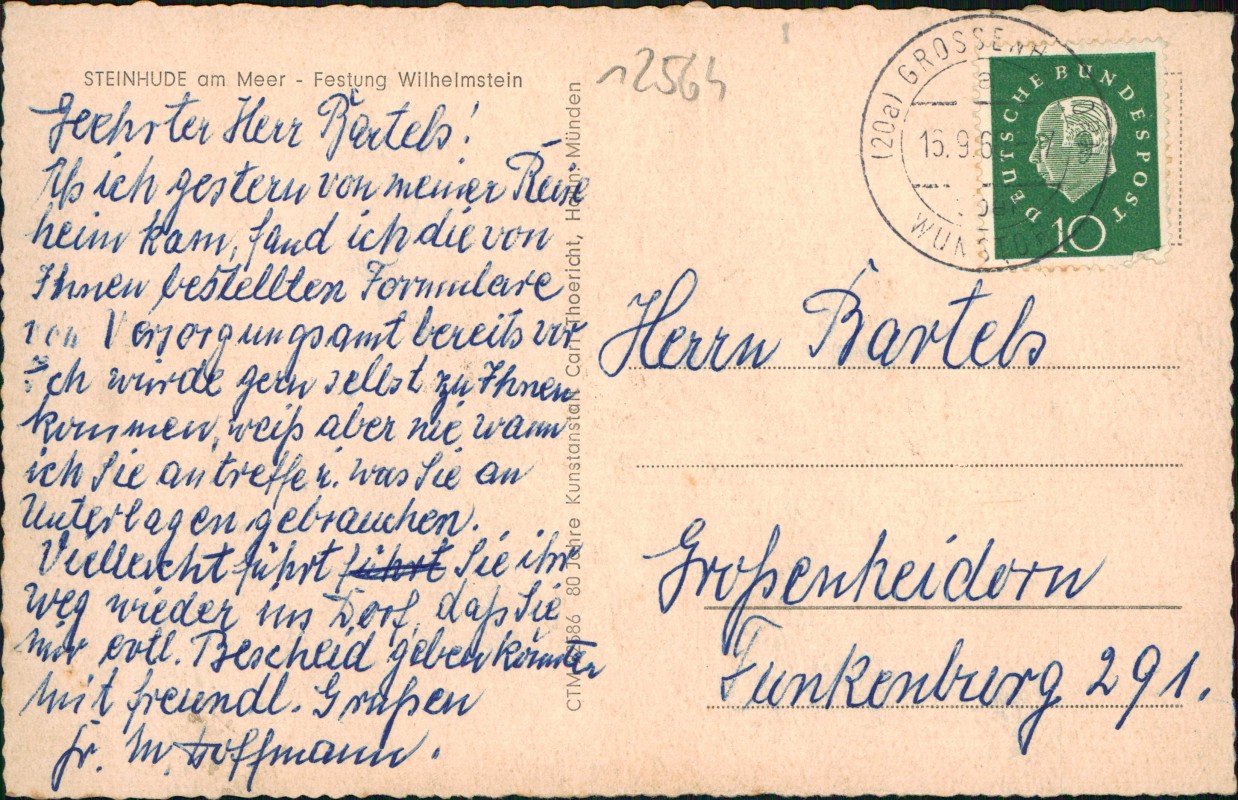 STEINHUDE am Meer - Festung Wilhelmstein
Geehrter Herr Bartels!
Als ich gestern von meiner Reise
heim kam, fand ich die von
Ihnen bestellten Formulare
von Versorgungsamt bereits vor
Ich würde gern selbst zu Ihnen
kommen, weiß aber nie wann
ich Sie antreffe. was Sie an
Unterlagen gebrauchen.
Vielleicht führt führt Sie ihr
Weg wieder ins Dorf, daß Sie
mir evtl. Bescheid geben könnten
Mit freundl. Grüßen
Fr. M. Hoffmann.
80 Jahre Kunstanstalt Carl Thoericht, Hann. Münden
12564
(20a) GROSSENH
15.9.6
WUNSTORF
DEUTSCHE BUNDESPOST
10
Herrn Bartels
Großenheidorn
Funkenburg 291.